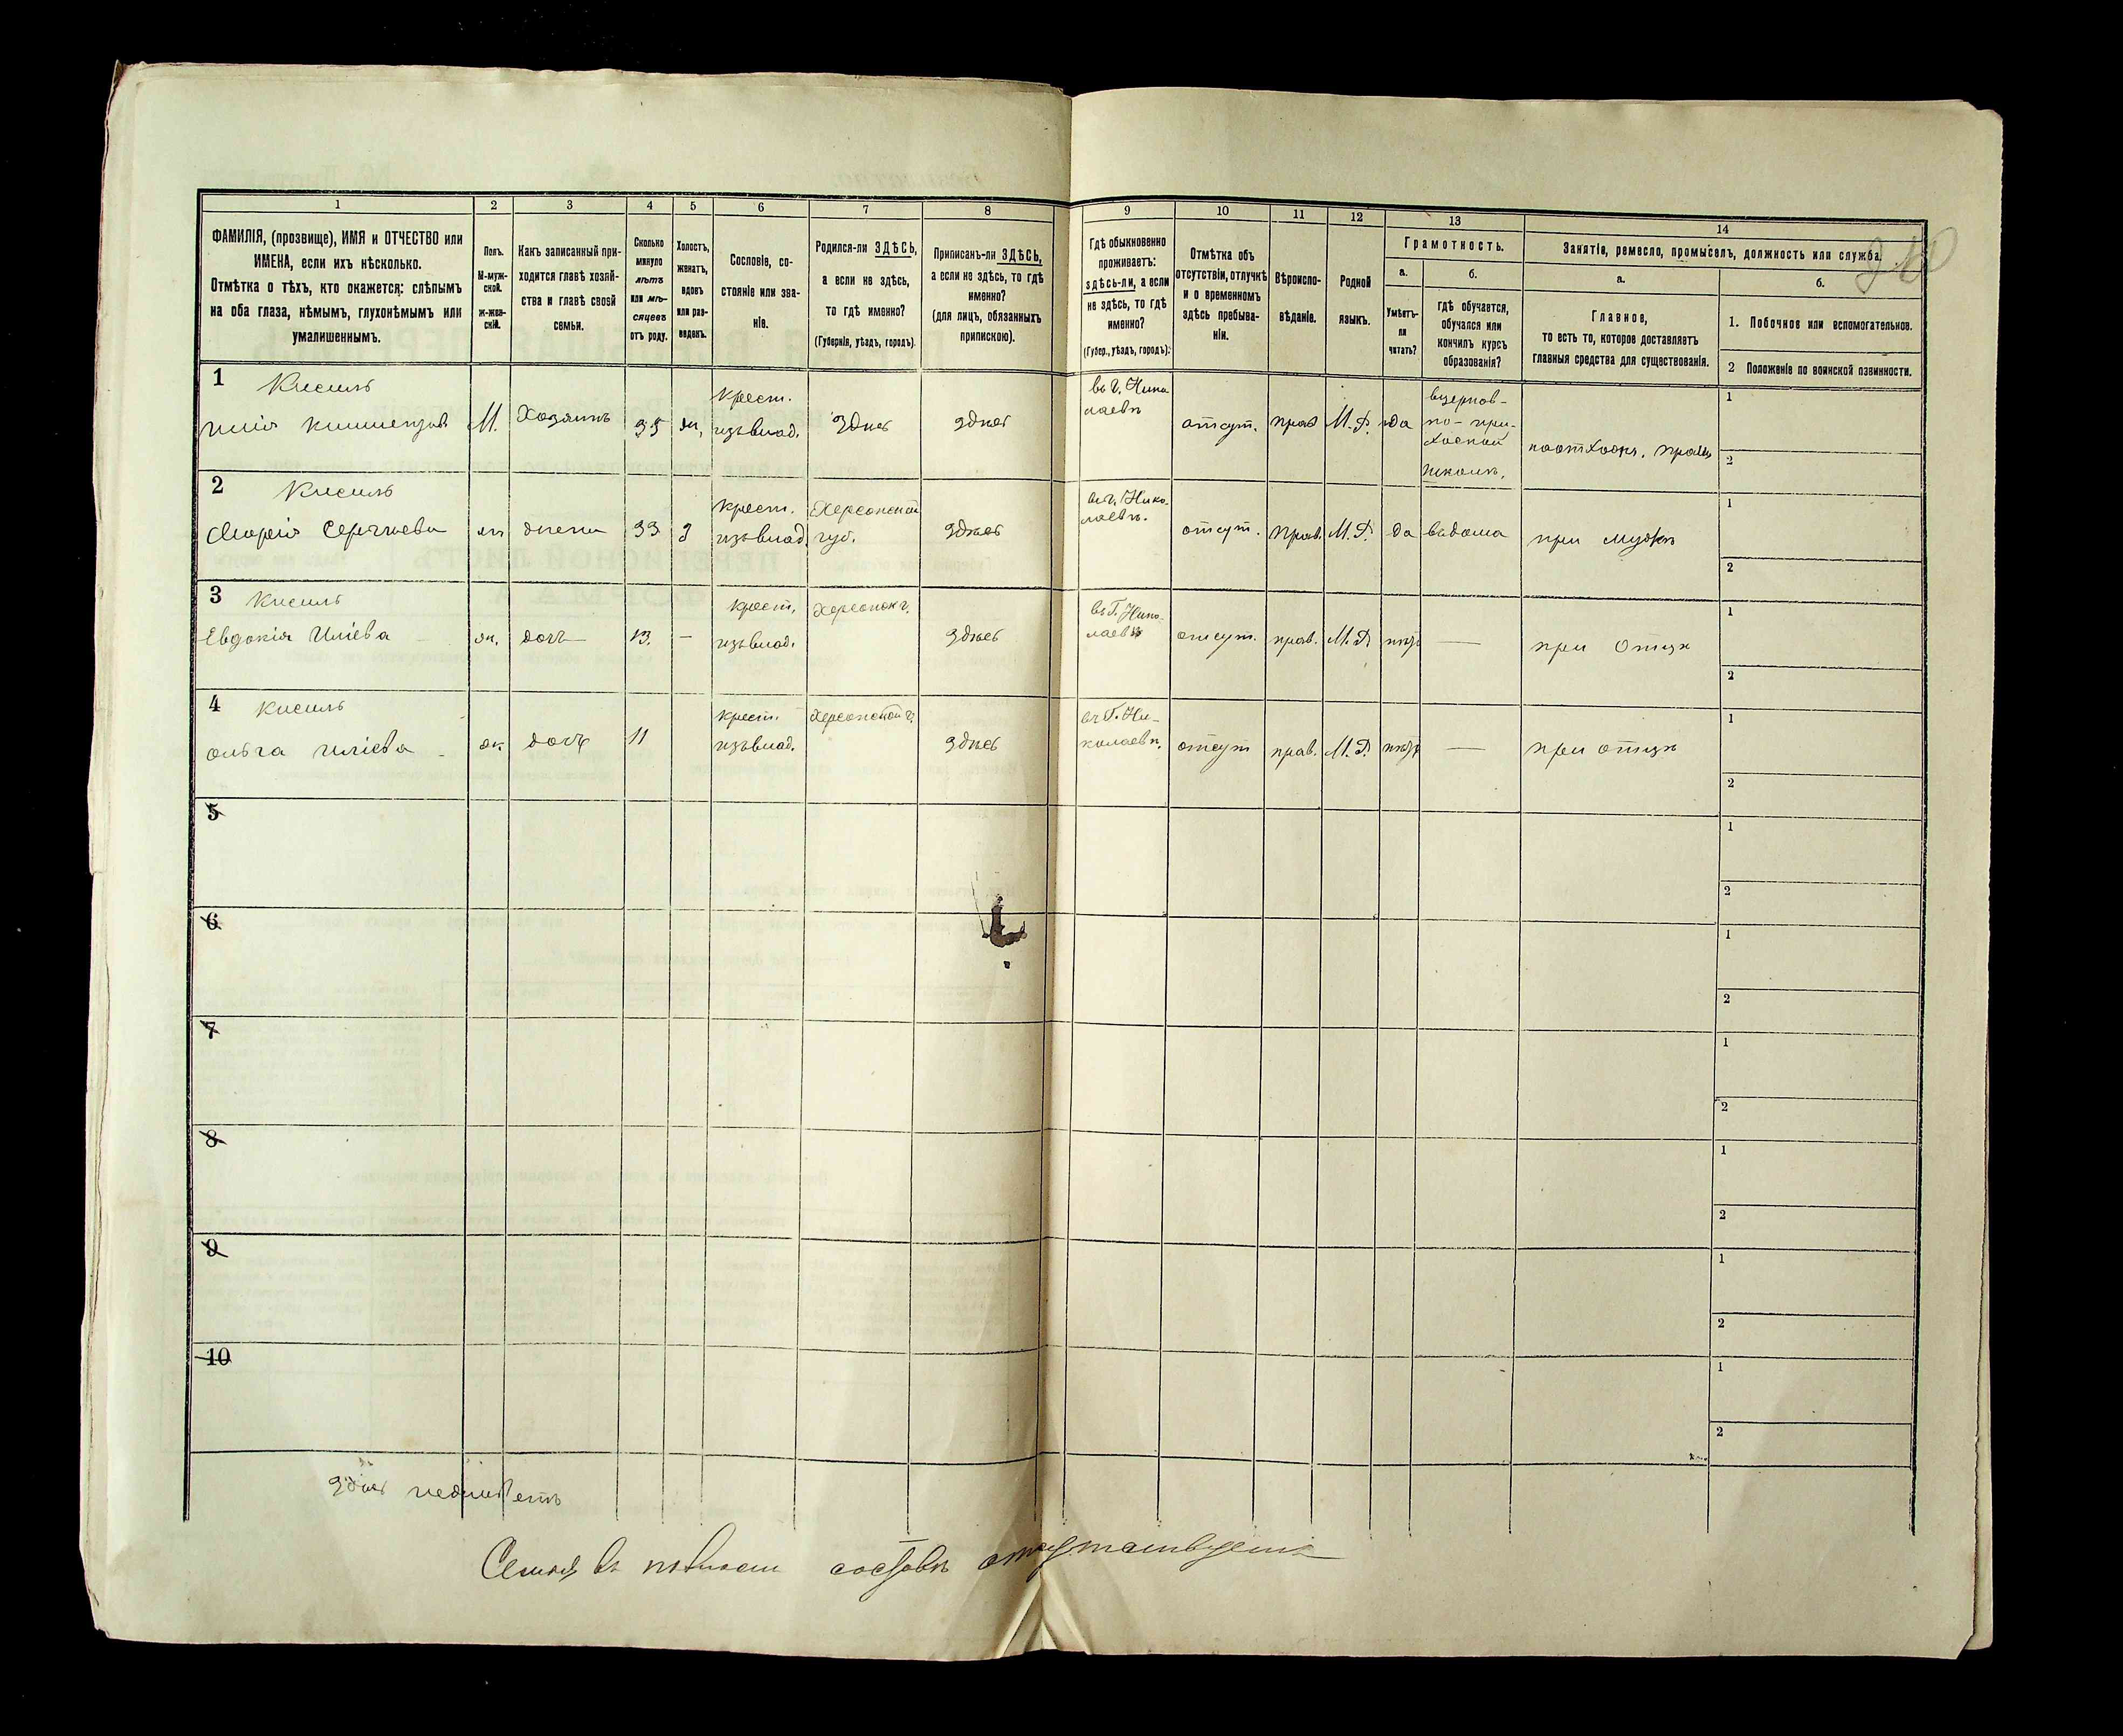 1
2
3
4
5
6
7
8
9
10
11
12
13
14
ФАМИЛІЯ, (прозвище), ИМЯ и ОТЧЕСТВО или
ИМЕНА, если ихъ нѣсколько.
Отмѣтка о тѣхъ, кто окажется: слѣпымъ
на оба глаза, нѣмымъ, глухонѣмымъ или
умалишеннымъ.
Полъ.
М-муж-
ской.
Ж-жен-
скій.
Какъ записанный при-
ходится главѣ хозяй-
ства и главѣ своей
семьи.
Сколько
минуло
лѣтъ
или мѣ-
сяцевъ
отъ роду.
Холостъ,
женатъ,
вдовъ
или раз-
веденъ.
Сословіе, со-
стояніе или зва-
ніе.
Родился-ли ЗДѢСЬ,
а если не здѣсь,
то гдѣ именно?
(Губернія, уѣздъ, городъ).
Приписанъ-ли ЗДѢСЬ,
а если не здѣсь, то гдѣ
именно?
(для лицъ, обязанныхъ
припискою).
Гдѣ обыкновенно
проживаетъ:
здѣсь-ли, а если
не здѣсь, то гдѣ
именно?
(Губер., уѣздъ, городъ).
Отмѣтка объ
отсутствіи, отлучкѣ
и о временномъ
здѣсь пребыва-
ніи.
Вѣроиспо-
вѣданіе.
Родной
языкъ.
Грамотность.
а.
Умѣетъ-
ли
читать?
б.
гдѣ обучается,
обучался или
кончилъ курсъ
образованія?
Занятія, ремесло, промыселъ, должность или служба.
а.
Главное,
то есть то, которое доставляетъ
главныя средства для существованія.
б.
1. Побочное или вспомогательное.
2 Положеніе по воинской повинности.
1 Кисиль
М. Хозяинъ 35 крест. изъ влад. Здѣсь здѣсь
въ г. Нико
лаевѣ
отсут. прав М. Р. да
1
2
2 Кисиль
Марія Сергѣева жена 33 крест. изъ влад. Херсонской губ. здѣсь
въ г. Нико
лаевѣ.
отсут. прав. М. Р. да въ дома при мужѣ
1
2
3 Кисиль
Евдокія Иліева дочь 13. — крест. изъ влад. здѣсь
въ Г. Нико-
лаевѣ
отсут. прав. М. Р. нѣтъ — при отцѣ
1
2
4 Кисиль
Ольга Иліева дочь 11 крест. изъ влад. Херсонской г. здѣсь
въ Г. Ни-
колаевѣ.
отсут прав. М. Р. нѣтъ — при отцѣ
1
2
5
1
2
6
1
2
7
1
2
8
1
2
9
1
2
10
1
2
Семья въ составѣ отсутствуетъ